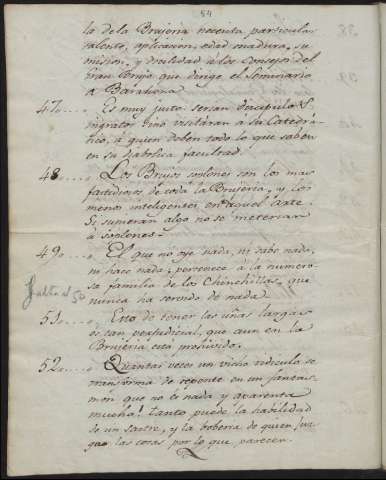 54
la de la Brujeria necesita particular
talento, aplicacion, edad madura, su
mision, y docilidad a los Consejos del
Gran Brujo que dirige el Seminario
de Barahona.
47.... Es muy justo serian discipulas
ingratas sino visitáran á su Catedra-
tico, á quien deben todo lo que saben
en su diabolica facultad.
48.... Los Brujos soplones son los mas
fastidiosos de toda la Brujeria, y los
menos inteligentes en aquel arte.
Si supieran algo no se meterian
á soplones.
49.... El que no oye nada, ni sabe nada,
ni hace nada, pertenece á la numero-
sa familia de los Chinchillas, que
nunca ha servido de nada.
Falta el 50
51.... Esto de tener las uñas largas
es tan perjudicial, que aun en la
Brujeria está prohivido.
52.... Quantas veces un vicho ridiculo se
transforma de repente en un fantas-
mon que no es nada y aparenta
mucho! Tanto puede la habilidad
de un sastre, y la boberia de quien juz-
ga las cosas por lo que parecen.